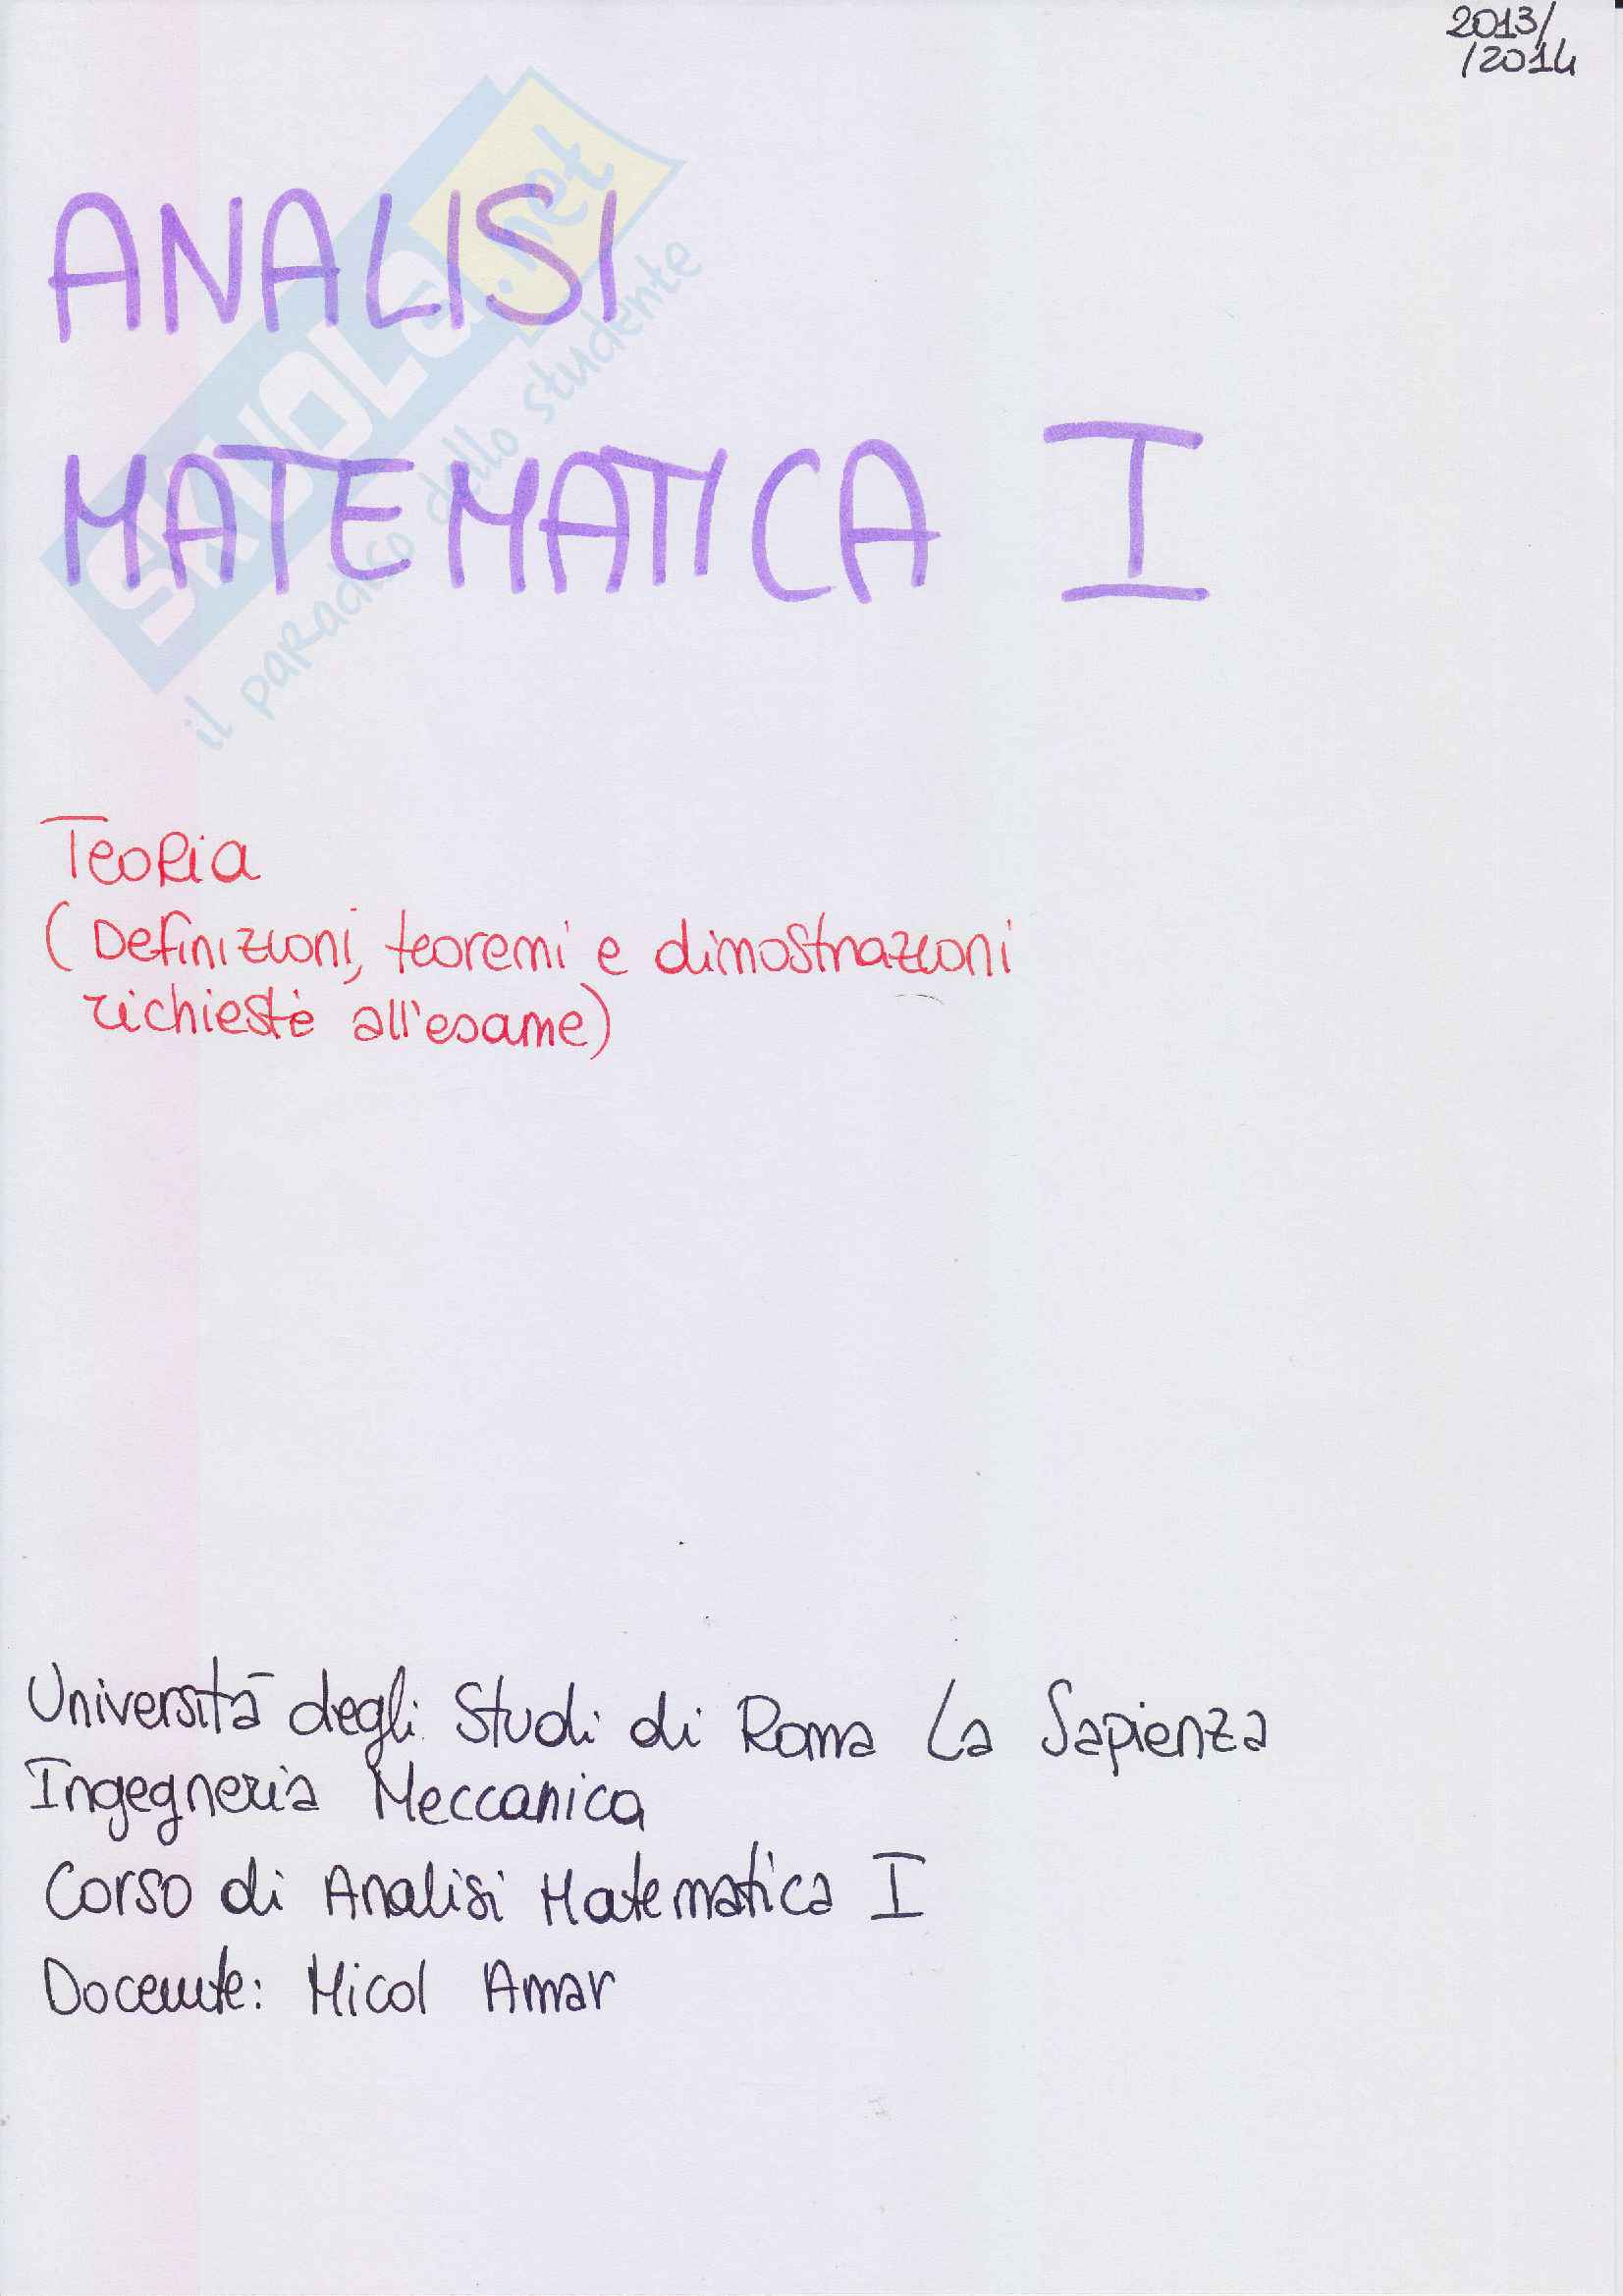 2013/
/2014
ANALISI
MATEMATICA I
SKUOLA.net
il paradiso dello studente
Teoria
(Definizioni, teoremi e dimostrazioni
richieste all'esame)
Università degli Studi di Roma La Sapienza
Ingegneria Meccanica
Corso di Analisi Matematica I
Docente: Micol Amar